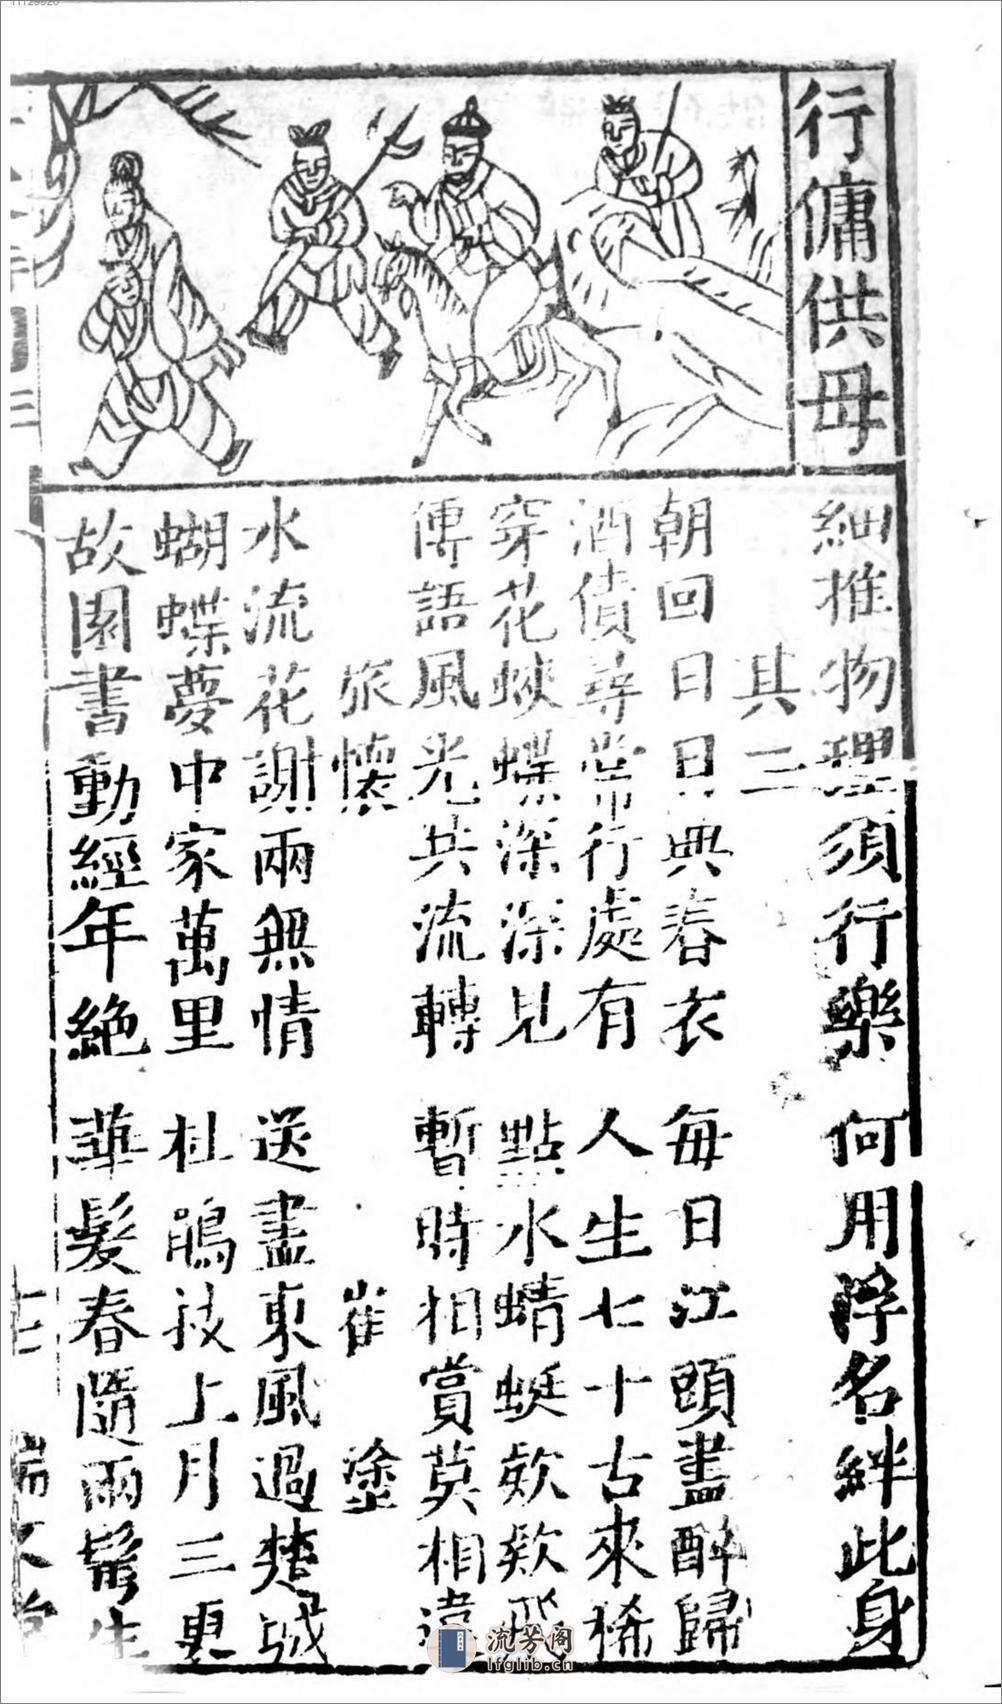 行傭供母
細推物理須行樂 何用浮名絆此身
其二
朝回日日典春衣 每日江頭盡醉歸
酒債尋常行處有 人生七十古來稀
穿花蛺蝶深深見 點水蜻蜓欵欵飛
傳語風光共流轉 暫時相賞莫相違
旅懷 崔塗
水流花謝兩無情 送盡東風過楚城
蝴蝶夢中家萬里 杜鵑枝上月三更
故園書動經年絕 華髮春隨兩鬢生
流芳阁
lfglib.cn